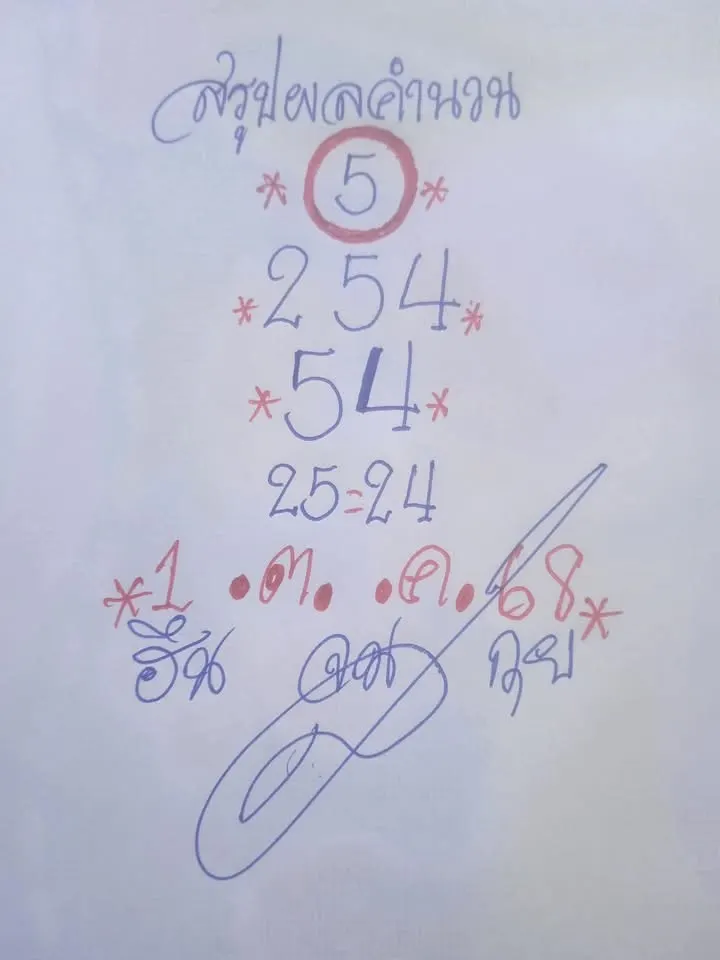 สรุปผลคำนวน
* 5 *
* 254 *
* 54 *
25=24
*1 .ต. .ค. 68*
ฮึน จน